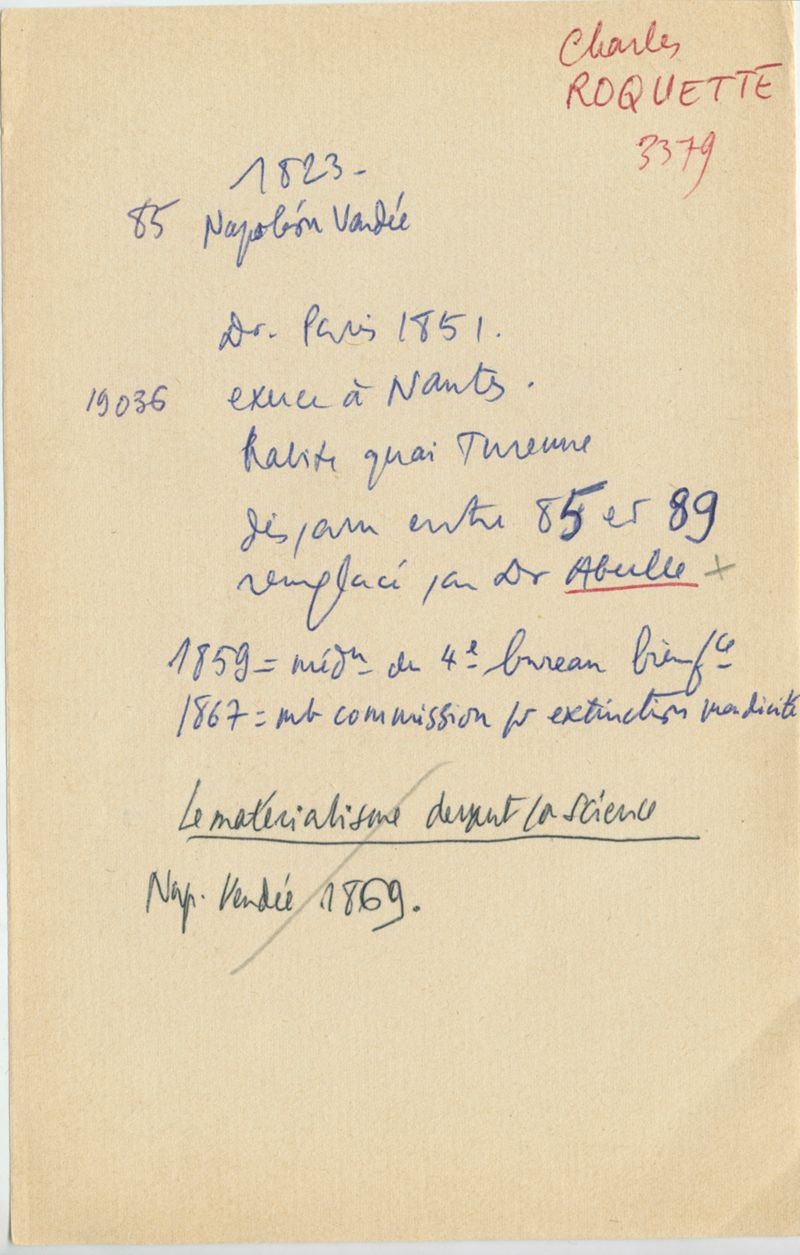 Charles
ROQUETTE
3379
1823-
85 Napoléon Vendée
Dr. Paris 1851.
19036 exerce à Nantes.
habite quai Turenne
disparu entre 85 et 89
remplacé par Dr Abeille +
1859 = médn du 4e bureau bienfce
1867 = mb commission pr extinction mendicité
Le matérialisme devant la science
Nap. Vendée 1869.